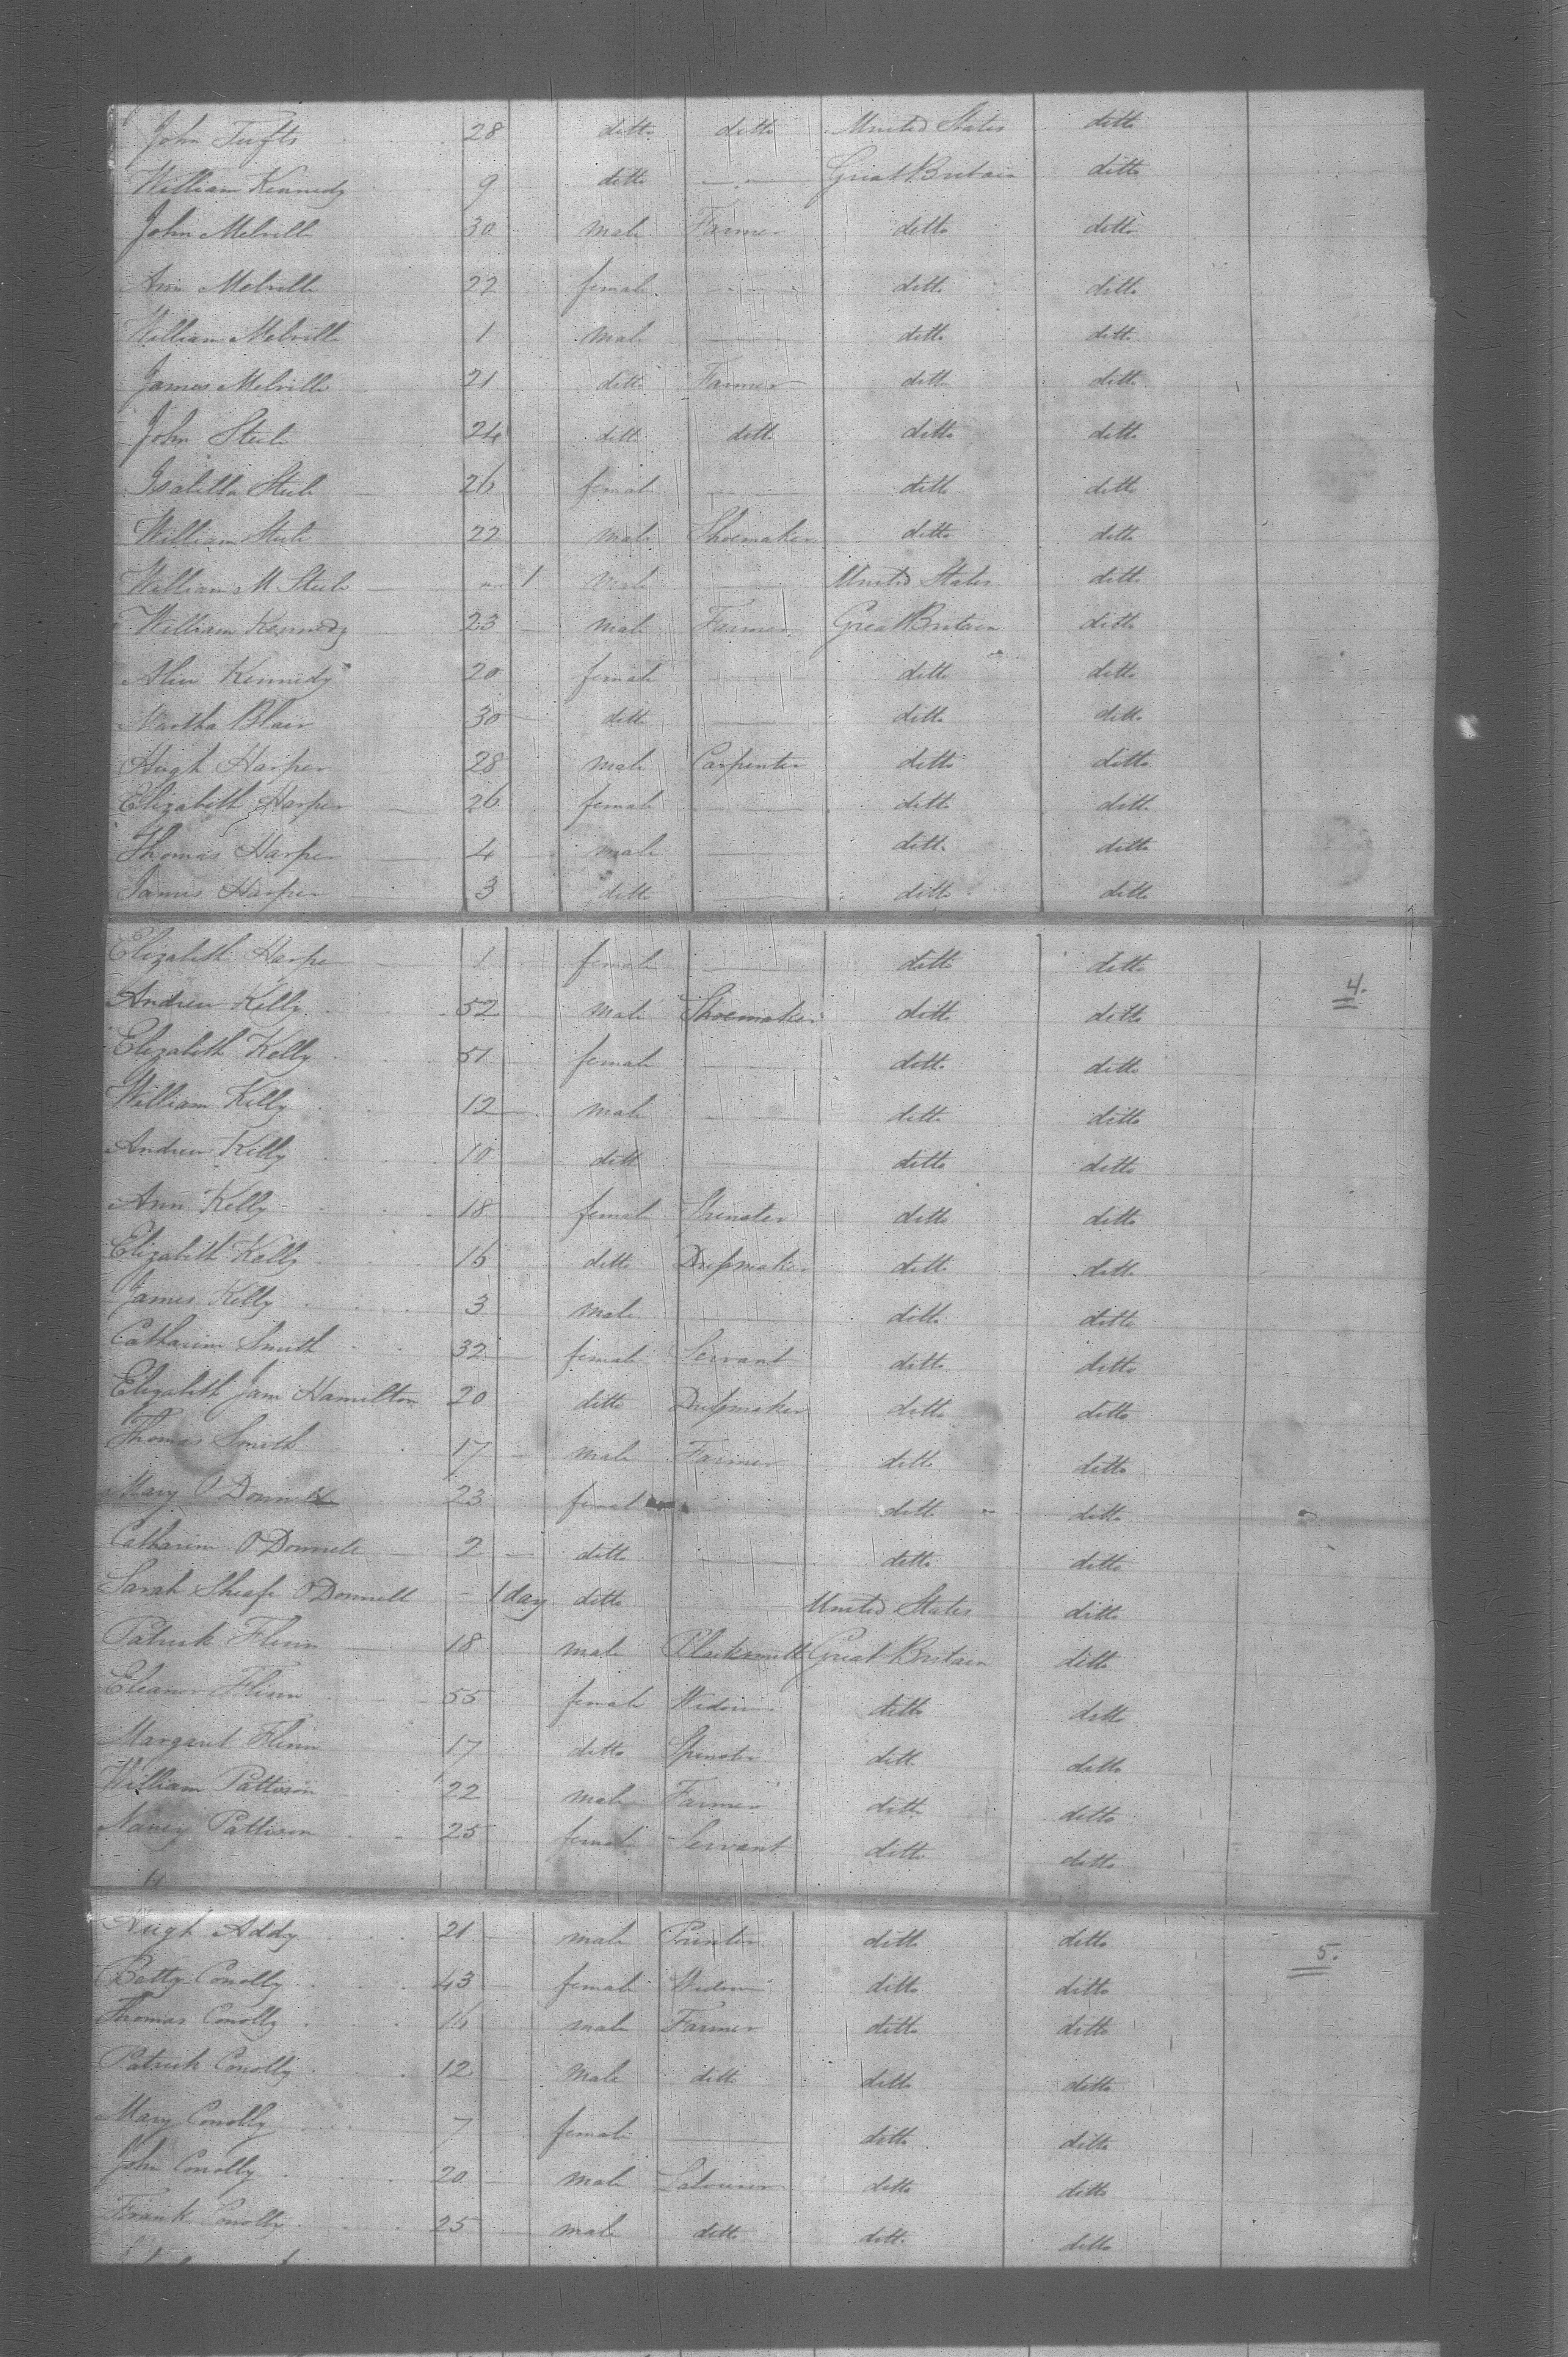 John Tufts 28 ditto ditto United States ditto
William Kennedy 9 ditto — Great Britain ditto
John Melville 30 male Farmer ditto ditto
Ann Melville 22 female — ditto ditto
William Melville 1 male — ditto ditto
James Melville 21 ditto Farmer ditto ditto
John Steele 24 ditto ditto ditto ditto
Isabella Steele 26 female — ditto ditto
William Steele 22 male Shoemaker ditto ditto
William M Steele — " 1 male — United States ditto
William Kennedy 23 male Farmer Great Britain ditto
Alice Kennedy 20 female — ditto ditto
Martha Blair 30 ditto — ditto ditto
Hugh Harper 28 male Carpenter ditto ditto
Elizabeth Harper 26 female — ditto ditto
Thomas Harper 4 male — ditto ditto
James Harper 3 ditto — ditto ditto
Elizabeth Harper 1 female — ditto ditto
4.
Andrew Kelly 52 male Shoemaker ditto ditto
Elizabeth Kelly 51 female — ditto ditto
William Kelly 12 male — ditto ditto
Andrew Kelly 10 ditto — ditto ditto
Ann Kelly 18 female Spinster ditto ditto
Elizabeth Kelly 16 ditto Dressmaker ditto ditto
James Kelly 3 male — ditto ditto
Catharine Smith 32 female Servant ditto ditto
Elizabeth Jane Hamilton 20 ditto Dressmaker ditto ditto
Thomas Smith 17 male Farmer ditto ditto
Mary O'Donnell 23 female ditto ditto
Catharine O'Donnell 2 ditto — ditto ditto
Sarah Sheafe O'Donnell - 1 day ditto — United States ditto
Patrick Flinn 18 male Blacksmith Great Britain ditto
Eleanor Flinn 55 female Widow ditto ditto
Margaret Flinn 17 ditto Spinster ditto ditto
William Pattison 22 male Farmer ditto ditto
Nancy Pattison 25 female Servant ditto ditto
Hugh Addy 21 male Printer ditto ditto
5.
Betty Conolly 43 female Widow ditto ditto
Thomas Conolly 16 male Farmer ditto ditto
Patrick Conolly 12 male ditto ditto ditto
Mary Conolly 7 female — ditto ditto
John Conolly 20 male Labourer ditto ditto
Frank Conolly 25 male ditto ditto ditto